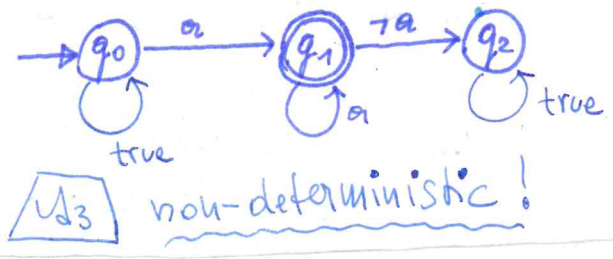 q0 a q1 ¬a q2
true a true
A3 non-deterministic!